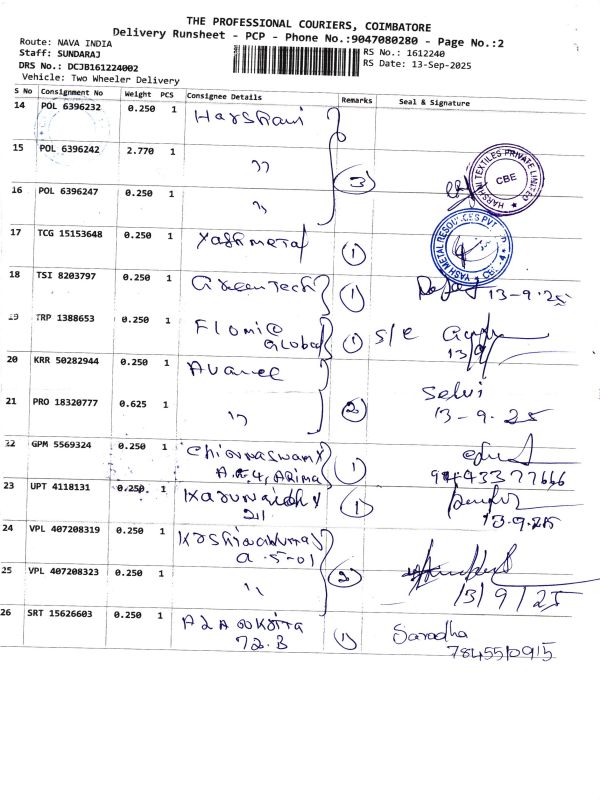 THE PROFESSIONAL COURIERS, COIMBATORE
Delivery Runsheet - PCP - Phone No.:9047080280 - Page No.:2
Route: NAVA INDIA
Staff: SUNDARAJ
RS No.: 1612240
DRS No.: DCJB161224002
RS Date: 13-Sep-2025
Vehicle: Two Wheeler Delivery
S No Consignment No Weight PCS Consignee Details Remarks Seal & Signature
14 POL 6396232 0.250 1
15 POL 6396242 2.770 1 ,,
HARSHNI TEXTILES PRIVATE LIMITED CBE
16 POL 6396247 0.250 1 ,, 3
17 TCG 15153648 0.250 1 Yash metal 1
YASH METAL RESOURCES PVT LTD
18 TSI 8203797 0.250 1 Green Tech 1 13-9-25
19 TRP 1388653 0.250 1 Flomic Global 1 S/C 13/9
20 KRR 50282944 0.250 1
21 PRO 18320777 0.625 1 ,, 2 Selvi 13-9-25
22 GPM 5569324 0.250 1 Chinnaswamy 1
9443377666
23 UPT 4118131 0.250 1 1
211 13.9.25
24 VPL 407208319 0.250 1
a-5-01
25 VPL 407208323 0.250 1 ,, 2 13/9/25
26 SRT 15626603 0.250 1 1 Saradha
72.B 7845510915